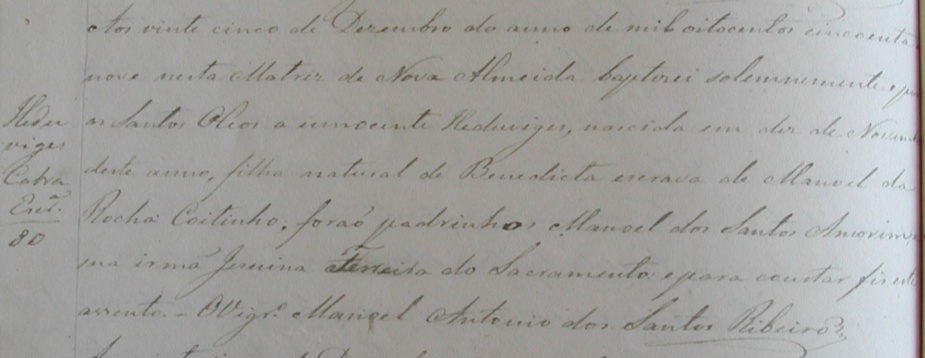 Aos vinte cinco de Dezembro do anno de mil oitocentos cincoenta
nove nesta Matriz de Nova Almeida baptizei solemnemente e puz
os Santos Oleos a innocente Heduviges, nascida em dez de Novem
deste anno, filha natural de Benedicta escrava de Manoel da
Rocha Coitinho, foraõ padrinhos Manoel dos Santos Amorim,
sua irmã Jesuina do Sacramento: e para constar fis este
assento. - O Vigrº Manoel Antonio dos Santos Ribeiro
Hedu
viges
Cabra
Escª
80